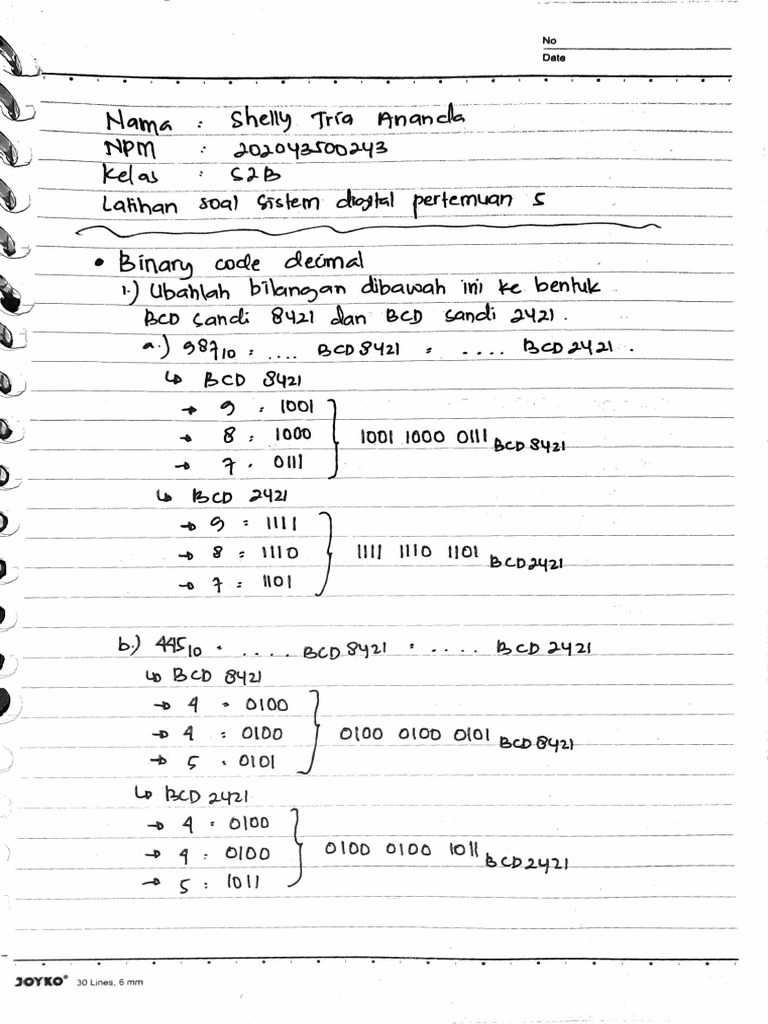 No
Date
Nama : Shelly Tria Ananda
NPM : 202043500243
Kelas : S2B
Latihan soal sistem digital pertemuan 5
• Binary code decimal
1.) Ubahlah bilangan dibawah ini ke bentuk
BCD sandi 8421 dan BCD sandi 2421.
a.) 987₁₀ = .... BCD 8421 = .... BCD 2421.
↳ BCD 8421
→ 9 : 1001
→ 8 : 1000 1001 1000 0111 BCD 8421
→ 7 . 0111
↳ BCD 2421
→ 9 = 1111
→ 8 = 1110 1111 1110 1101 BCD 2421
→ 7 = 1101
b.) 445₁₀ = .... BCD 8421 = .... BCD 2421
↳ BCD 8421
→ 4 = 0100
→ 4 : 0100 0100 0100 0101 BCD 8421
→ 5 . 0101
↳ BCD 2421
→ 4 = 0100
→ 4 : 0100 0100 0100 1011 BCD 2421
→ 5 : 1011
JOYKO® 30 Lines, 6 mm